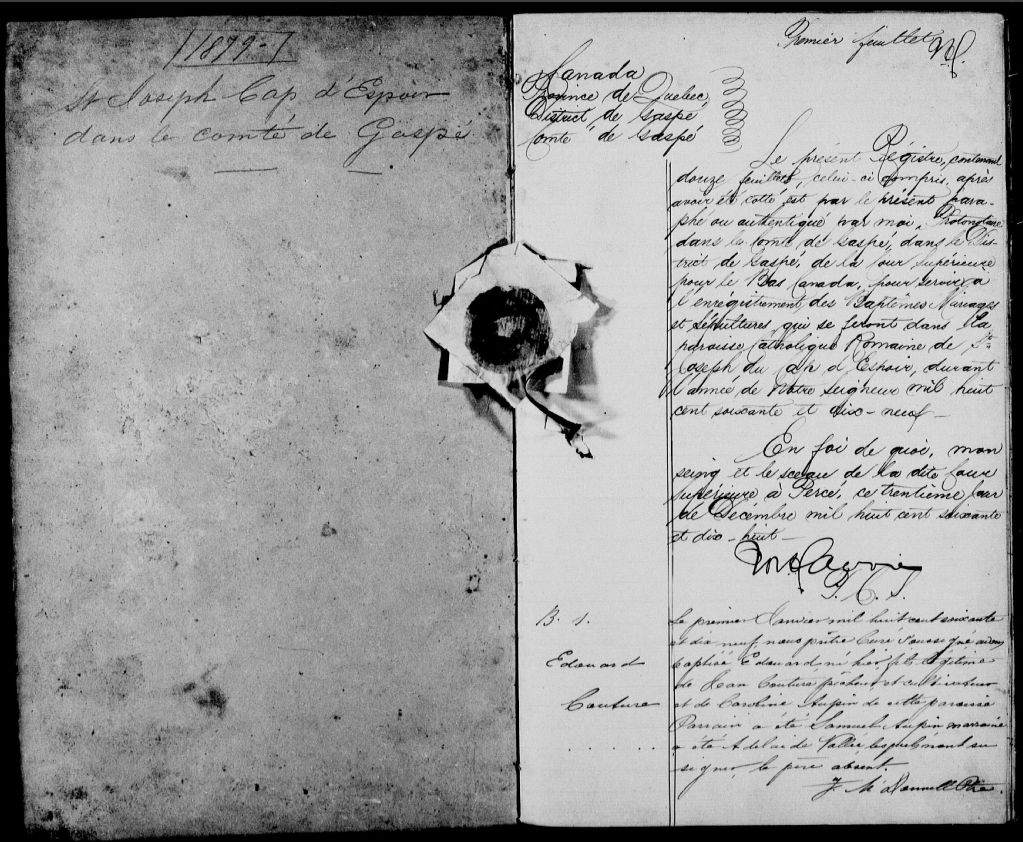 1879
St Joseph Cap d'Espoir
dans le comté de Gaspé
Premier feuillet
Canada
Province de Quebec,
District de Gaspé
Comté de Gaspé
Le présent Régistre, contenant
douze feuillets, celui-ci compris, après
avoir été cotté est par le présent para-
phé ou authentiqué par moi, Protonotaire
dans le comté de Gaspé, dans le Dis-
trict de Gaspé, de la Cour Supérieure
pour le Bas Canada, pour servir à
l'enrégistrement des Baptêmes Mariages
et Sépultures, qui se feront dans la
paroisse Catholique Romaine de St
Joseph du Cap d'Espoir, durant
l'année de Notre Seigneur mil huit
cent soixante et dix-neuf
En foi de quoi, mon
seing et le sceau de la dite Cour
Supérieure à Percé, ce trentième jour
de Décembre mil huit cent soixante
et dix-huit
P. C. S.
B. 1.
Edouard
Couture
Le premier Janvier mil huit cent soixante
et dix neuf nous prêtre Curé soussigné avons
baptisé Edouard, né hier, fils légitime
de Jean Couture pêcheur et cultivateur
et de Caroline Aupin de cette paroisse
Parrain a été Samuel Aupin marraine
a été Adelaide Vallée lesquels n'ont su
signer, le père absent.
J. Mc Donnell Ptre.